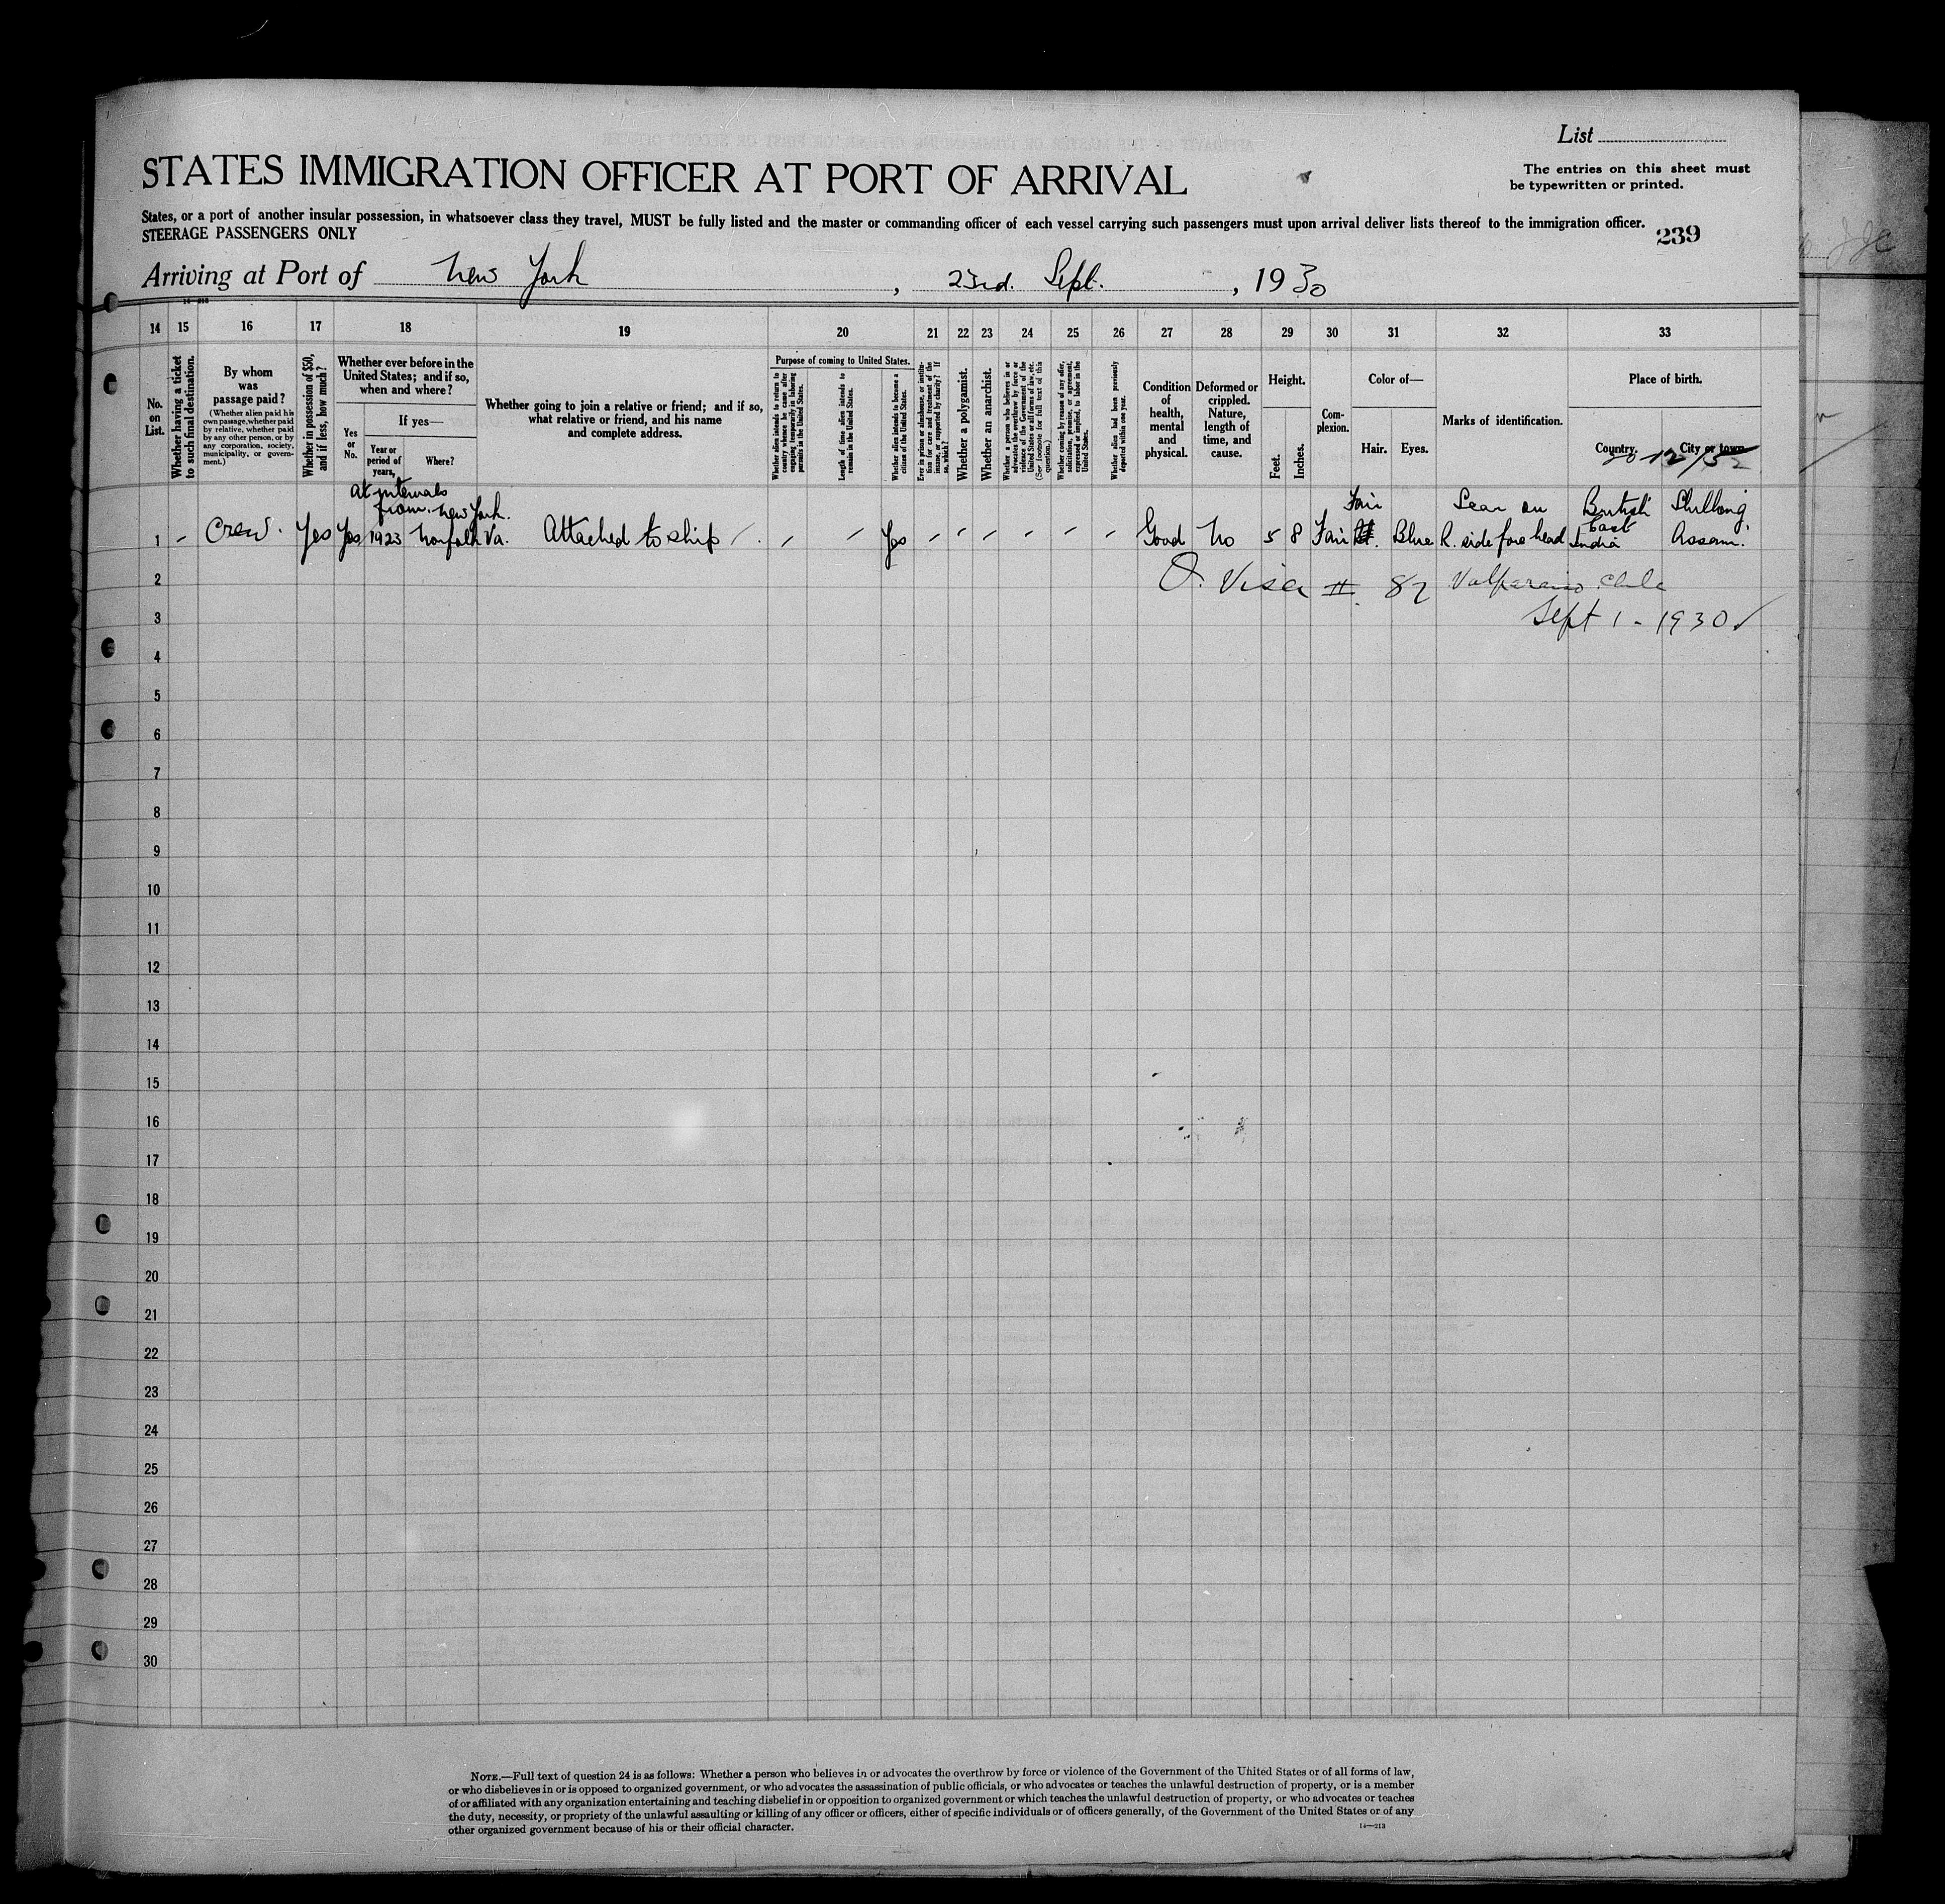 List
STATES IMMIGRATION OFFICER AT PORT OF ARRIVAL
The entries on this sheet must
be typewritten or printed.
States, or a port of another insular possession, in whatsoever class they travel, MUST be fully listed and the master or commanding officer of each vessel carrying such passengers must upon arrival deliver lists thereof to the immigration officer.
STEERAGE PASSENGERS ONLY
239
Arriving at Port of New York, 23rd. Sept., 1930
14 15 16 17 18 19 20 21 22 23 24 25 26 27 28 29 30 31 32 33
No. on List.
Whether having a ticket to such final destination.
By whom was passage paid?
(Whether alien paid his own passage, whether paid by relative, whether paid by any other person, or by any corporation, society, municipality, or government.)
Whether in possession of $50, and if less, how much?
Whether ever before in the United States; and if so, when and where?
Yes or No.
If yes—
Year or period of years,
Where?
Whether going to join a relative or friend; and if so, what relative or friend, and his name and complete address.
Purpose of coming to United States.
Whether alien intends to return to country whence he came after engaging temporarily in laboring pursuits in the United States.
Length of time alien intends to remain in the United States.
Whether alien intends to become a citizen of the United States.
Ever in prison or almshouse, or institution for care and treatment of the insane, or supported by charity? If so, which?
Whether a polygamist.
Whether an anarchist.
Whether a person who believes in or advocates the overthrow by force or violence of the Government of the United States or all forms of law, etc. (See footnote for full text of this question.)
Whether coming by reason of any offer, solicitation, promise, or agreement, expressed or implied, to labor in the United States.
Whether alien had been previously deported within one year.
Condition of health, mental and physical.
Deformed or crippled. Nature, length of time, and cause.
Height.
Feet. Inches.
Complexion.
Color of—
Hair. Eyes.
Marks of identification.
Place of birth.
Country. City or town
at intervals from New York.
Fair Scar on British East Shillong,
1 - Crew. Yes Yes 1923 Norfolk Va. Attached to ship Yes Good No 5 8 Fair Blue R. side forehead India Assam.
2 Visa # 82 Valparaiso Chile
3 Sept 1 - 1930
4
5
6
7
8
9
10
11
12
13
14
15
16
17
18
19
20
21
22
23
24
25
26
27
28
29
30
NOTE.—Full text of question 24 is as follows: Whether a person who believes in or advocates the overthrow by force or violence of the Government of the United States or of all forms of law,
or who disbelieves in or is opposed to organized government, or who advocates the assassination of public officials, or who advocates or teaches the unlawful destruction of property, or is a member
of or affiliated with any organization entertaining and teaching disbelief in or opposition to organized government or which teaches the unlawful destruction of property, or who advocates or teaches
the duty, necessity, or propriety of the unlawful assaulting or killing of any officer or officers, either of specific individuals or of officers generally, of the Government of the United States or of any
other organized government because of his or their official character.
14—213